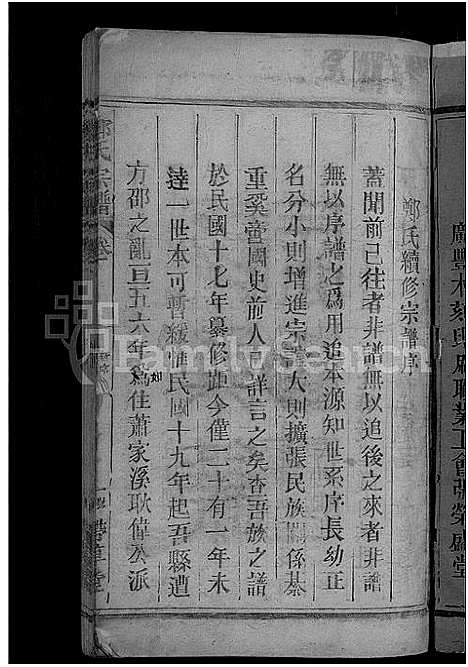 廣豐木刻印刷職業工會張榮盛堂
鄭氏續修宗譜序
蓋聞前已往者非譜無以追後之來者非譜
無以序譜之為用追本源知世系序長幼正
名分小則增進宗誼大則擴張民族關係綦
重奚啻國史前人已詳言之矣查吾族之譜
於民國十七年纂修距今僅二十有一年未
達一世本可暫緩惟民國十九年起吾縣遭
方邵之亂亘五六年為如住蕭家溪耿偉公派
鄭氏宗譜 卷
FamilySearch